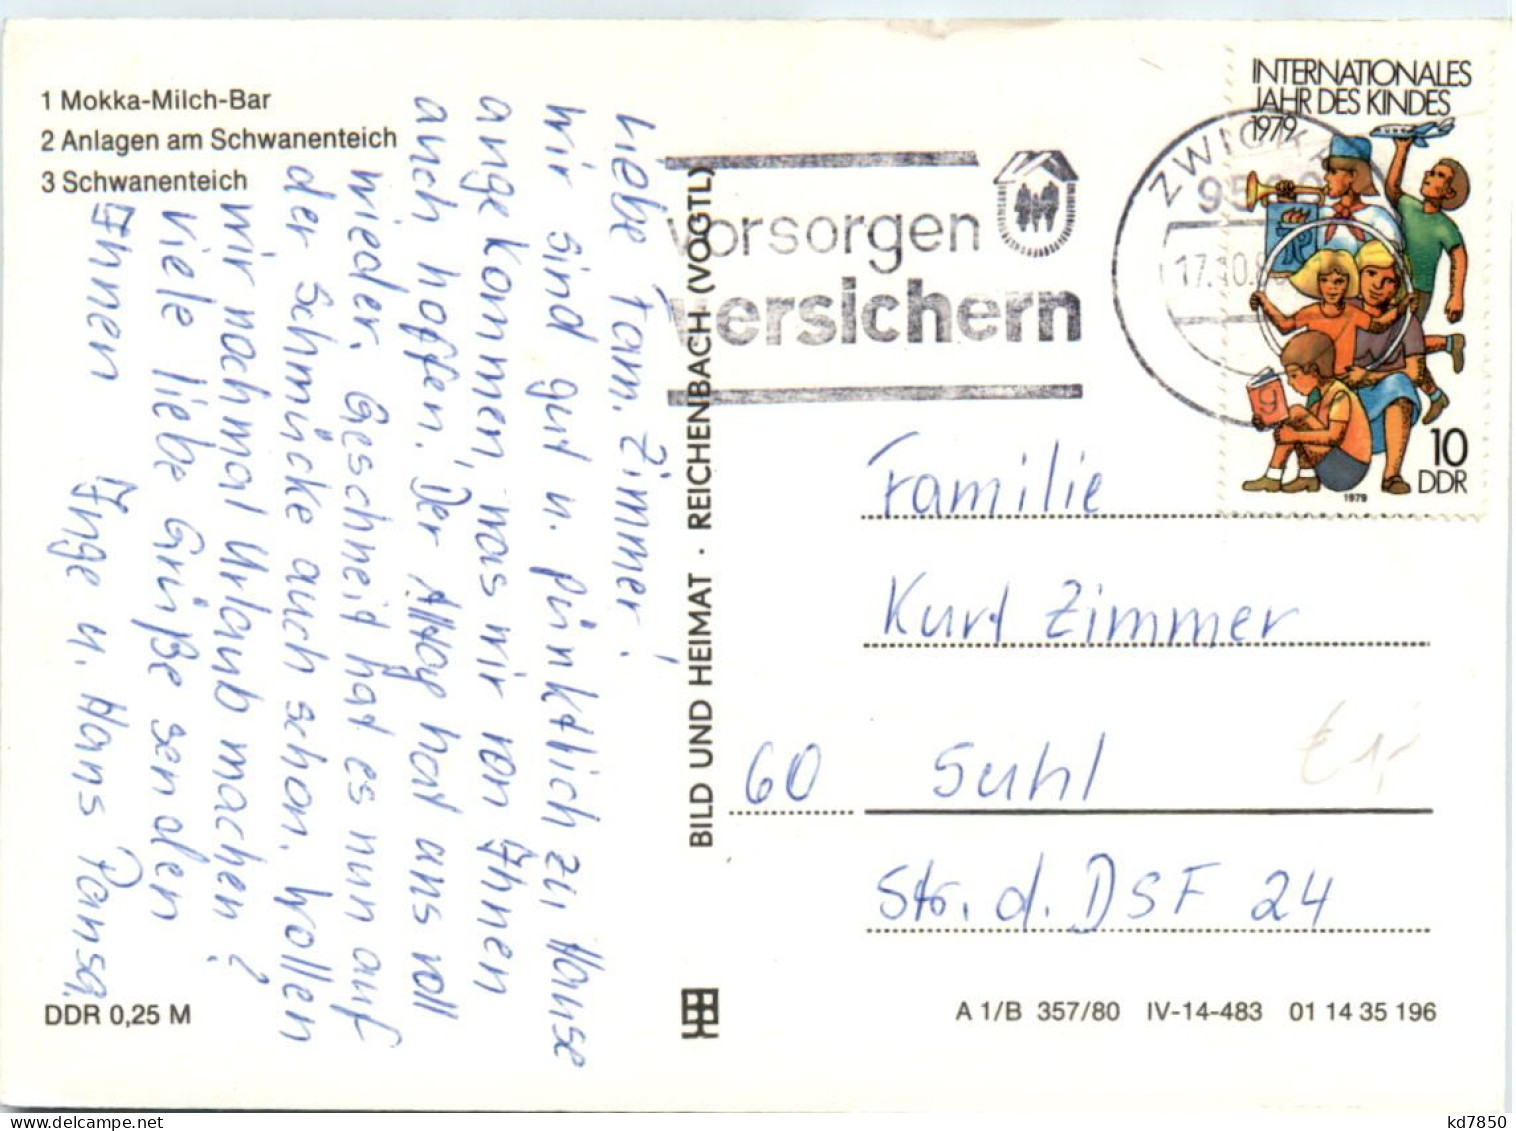 1 Mokka-Milch-Bar
2 Anlagen am Schwanenteich
3 Schwanenteich
Liebe Fam. Zimmer!
Wir sind gut u. pünktlich zu Hause
angekommen, was wir von Ihnen
auch hoffen. Der Alltag hat uns voll
wieder. Geschneit hat es nun auf
der Schmücke auch schon. Wollen
wir nochmal Urlaub machen?
Viele liebe Grüße senden
Ihnen
Inge u. Hans
DDR 0,25 M
BILD UND HEIMAT · REICHENBACH (VOGTL)
Vorsorgen
versichern
ZWICKA
95
17.10.8
INTERNATIONALES
JAHR DES KINDES
1979
9
10
DDR
1979
Familie
Kurt Zimmer
60 Suhl
Str. d. DSF 24
A 1/B 357/80 IV-14-483 01 14 35 196
kd7850